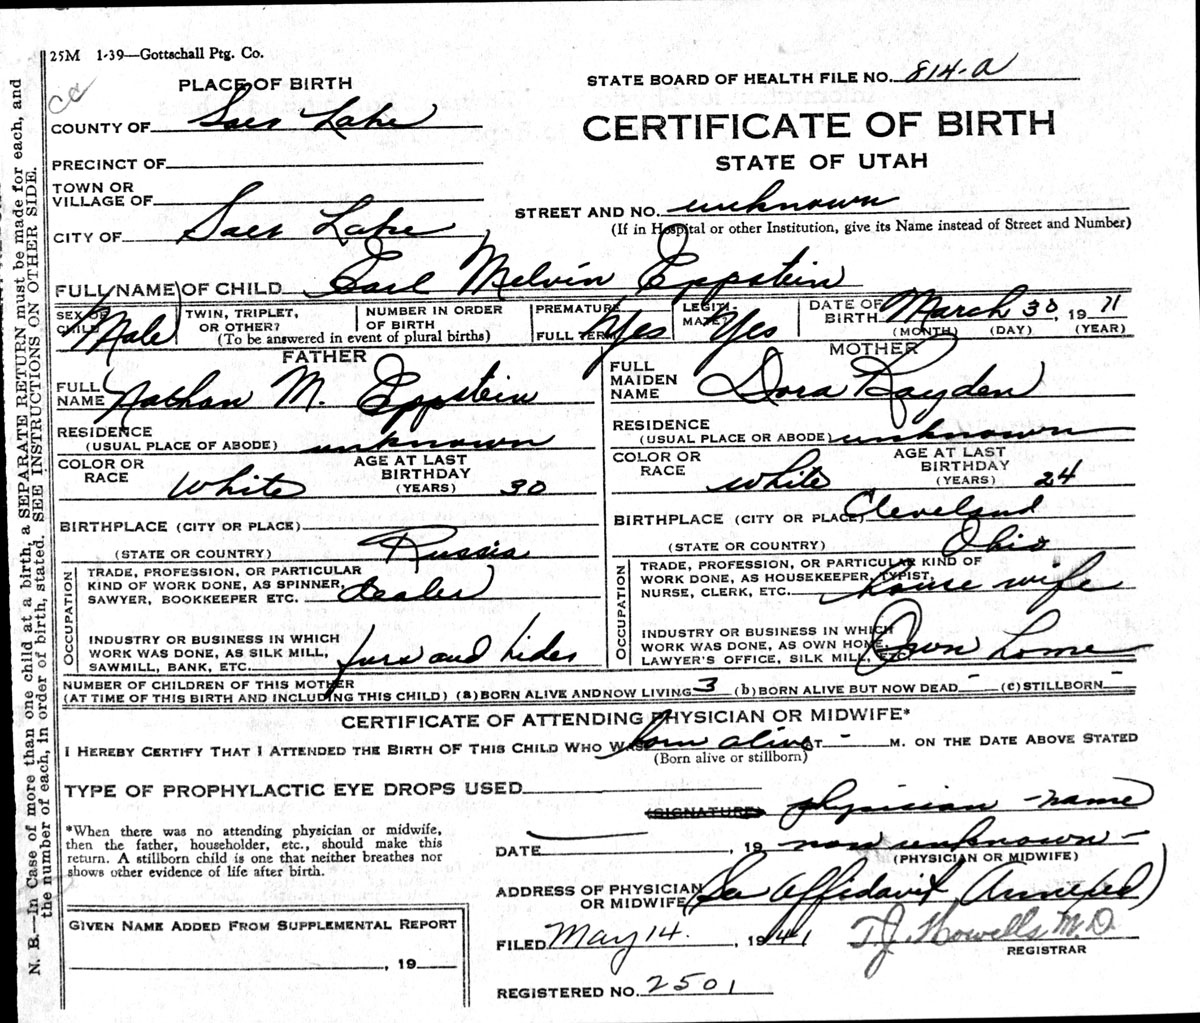 25M 1-39—Gottschall Ptg. Co.
PLACE OF BIRTH
STATE BOARD OF HEALTH FILE NO. 814-a
COUNTY OF Salt Lake
CERTIFICATE OF BIRTH
PRECINCT OF
STATE OF UTAH
TOWN OR
VILLAGE OF
STREET AND NO. unknown
(If in Hospital or other Institution, give its Name instead of Street and Number)
CITY OF Salt Lake
FULL NAME OF CHILD Earl Melvin Eppstein
SEX OF CHILD Male
TWIN, TRIPLET, OR OTHER?
NUMBER IN ORDER OF BIRTH
(To be answered in event of plural births)
PREMATURE
FULL TERM Yes
LEGITIMATE? Yes
DATE OF BIRTH March 30, 1911
(MONTH) (DAY) (YEAR)
FATHER
FULL NAME Nathan M. Eppstein
RESIDENCE
(USUAL PLACE OF ABODE) unknown
COLOR OR RACE White
AGE AT LAST BIRTHDAY (YEARS) 30
BIRTHPLACE (CITY OR PLACE)
(STATE OR COUNTRY) Russia
OCCUPATION
TRADE, PROFESSION, OR PARTICULAR
KIND OF WORK DONE, AS SPINNER,
SAWYER, BOOKKEEPER ETC. dealer
INDUSTRY OR BUSINESS IN WHICH
WORK WAS DONE, AS SILK MILL,
SAWMILL, BANK, ETC. furs and hides
MOTHER
FULL MAIDEN NAME Dora Rayden
RESIDENCE
(USUAL PLACE OR ABODE) unknown
COLOR OR RACE White
AGE AT LAST BIRTHDAY (YEARS) 24
BIRTHPLACE (CITY OR PLACE) Cleveland
(STATE OR COUNTRY) Ohio
OCCUPATION
TRADE, PROFESSION, OR PARTICULAR KIND OF
WORK DONE, AS HOUSEKEEPER, TYPIST,
NURSE, CLERK, ETC. house wife
INDUSTRY OR BUSINESS IN WHICH
WORK WAS DONE, AS OWN HOME,
LAWYER'S OFFICE, SILK MILL, ETC. Own home
NUMBER OF CHILDREN OF THIS MOTHER
(AT TIME OF THIS BIRTH AND INCLUDING THIS CHILD) (a) BORN ALIVE AND NOW LIVING 3 (b) BORN ALIVE BUT NOW DEAD - (c) STILLBORN -
CERTIFICATE OF ATTENDING PHYSICIAN OR MIDWIFE*
I HEREBY CERTIFY THAT I ATTENDED THE BIRTH OF THIS CHILD WHO WAS born alive AT - M. ON THE DATE ABOVE STATED
(Born alive or stillborn)
TYPE OF PROPHYLACTIC EYE DROPS USED
(SIGNATURE) physician - name
*When there was no attending physician or midwife,
then the father, householder, etc., should make this
return. A stillborn child is one that neither breathes nor
shows other evidence of life after birth.
DATE , 19 now unknown -
(PHYSICIAN OR MIDWIFE)
ADDRESS OF PHYSICIAN
OR MIDWIFE (See Affidavit Annexed)
GIVEN NAME ADDED FROM SUPPLEMENTAL REPORT
, 19
FILED May 14. , 1941 T.J. Howells M.D.
REGISTRAR
REGISTERED NO. 2501
N. B.—In Case of more than one child at a birth, a SEPARATE RETURN must be made for each, and
the number of each, in order of birth, stated. SEE INSTRUCTIONS ON OTHER SIDE.